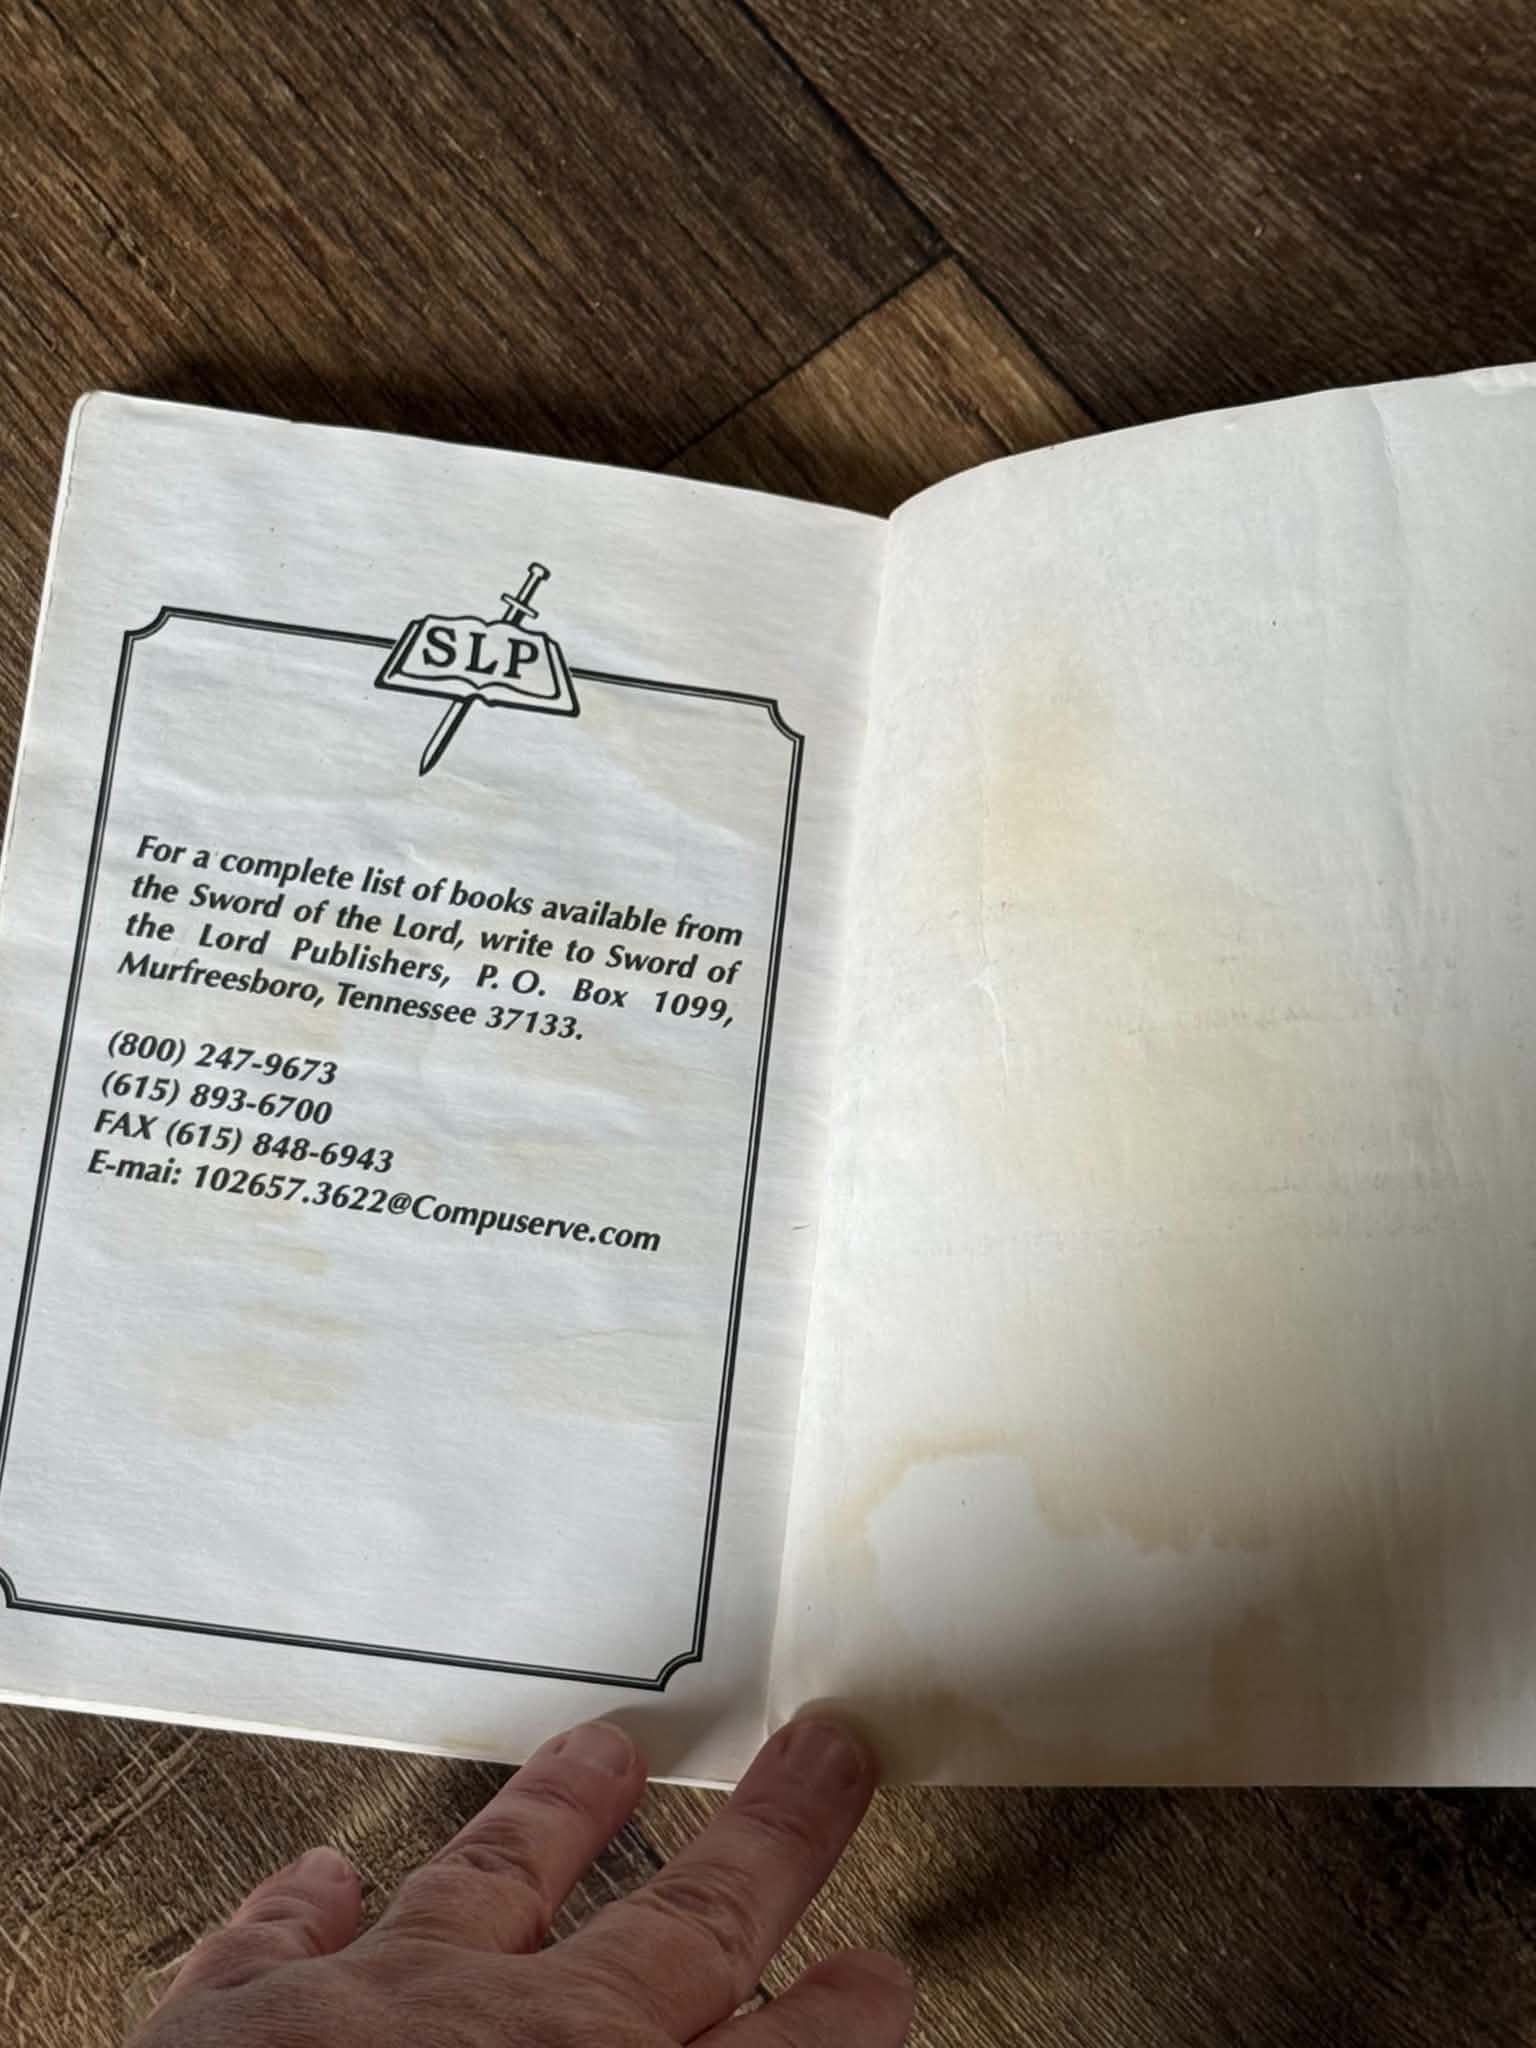 SLP
For a complete list of books available from
the Sword of the Lord, write to Sword of
the Lord Publishers, P. O. Box 1099,
Murfreesboro, Tennessee 37133.
(800) 247-9673
(615) 893-6700
FAX (615) 848-6943
E-mai: 102657.3622@Compuserve.com